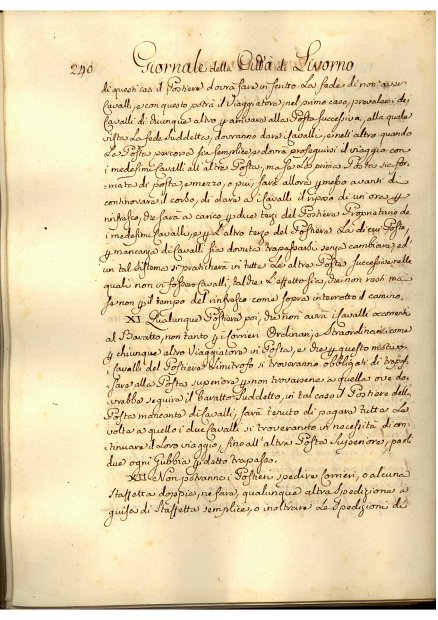 246 Giornale della Città di Livorno
di questi casi il Postiere dovrà fare in scritto la fede di non aver
Cavalli, e con questo potrà il Viaggiatore, nel primo caso, prevalersi dei
Cavalli di chiunque altro p andare alla Posta successiva, alla quale
vista la fede suddetta, dovranno dare Cavalli, e nell'altro quando
la Posta percorsa sia semplice, dovrà proseguirsi il viaggio con
i medesimi Cavalli all'altra Posta, ma se la prima Posta sia for-
mata di posta, e mezzo, o più, sarà allora p messo avanti di
continovare il corso, di dare a i Cavalli il riposo di un'ora p
rinfresco, che sarà a carico p due terzi del Postiere Proprietario de
i medesimi Cavalli, e p l'altro terzo del Postiere la di cui Posta,
p mancanza di Cavalli sia dovuta trapassarsi senza cambiare, ed
un tal sistema si praticherà in tutte le altre Poste successive, nelle
quali non vi fossero Cavalli, dal che l'effetto sia, che non resti mai
se non p il tempo del rinfresco come sopra interrotto il camino.
XI. Qualunque Postiere poi, che non avrà i Cavalli occorrenti
al Baratto, non tanto p i Corrieri Ordinari, e Straordinari, come
p chiunque altro Viaggiatore in Posta, e che p questo motivo i
Cavalli del Postiere limitrofo si troveranno obbligati di trapas=
sare alla Posta superiore p non trovarsene a quella ove do=
vrebbe seguire il baratto suddetto, in tal caso il Postiere della
Posta mancante di Cavalli, sarà tenuto di pagare tutte le
volte a quello i di cui Cavalli si troveranno in necessità di con=
tinuare il loro viaggio, fino all'altra Posta superiore, paoli
due ogni Gubbia p detto trapasso.
XII. Non potranno i Postieri spedire Corrieri, o alcuna
Staffetta doppia, ne fare, qualunque altra spedizione a
guisa di Staffetta semplice, o inoltrare le spedizioni di